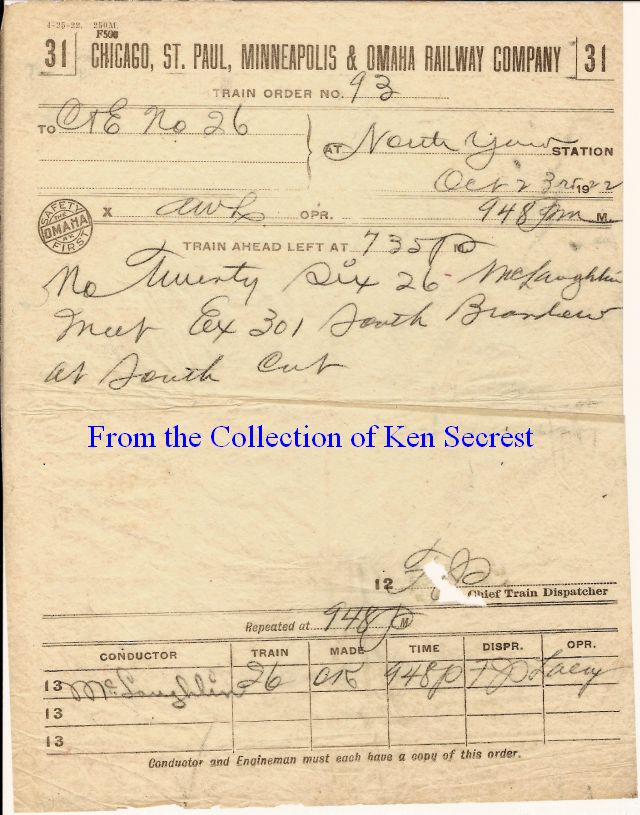 4-25-22. 250M.
F500
31 CHICAGO, ST. PAUL, MINNEAPOLIS & OMAHA RAILWAY COMPANY 31
TRAIN ORDER NO. 93
TO C&E No 26
AT North Yard STATION
Oct 23rd 1922
SAFETY THE OMAHA FIRST
X OPR. 948 pm M.
TRAIN AHEAD LEFT AT 735 P M.
No Twenty Six 26 McLaughlin
Meet Ex 301 South
at South Cut
From the Collection of Ken Secrest
12 Chief Train Dispatcher
Repeated at 948 P M
CONDUCTOR TRAIN MADE TIME DISPR. OPR.
13 McLaughlin 26 948p Lacey
13
13
Conductor and Engineman must each have a copy of this order.